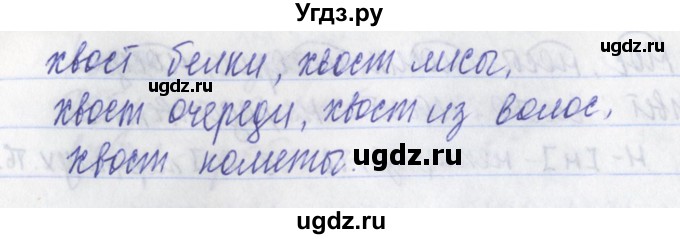 Угдз.ру
хвост белки, хвост лисы,
ugdz.ru
ugdz.ru
хвост очереди, хвост из волос,
хвост кометы.
ugdz.ru
ugdz.ru
ugdz.ru